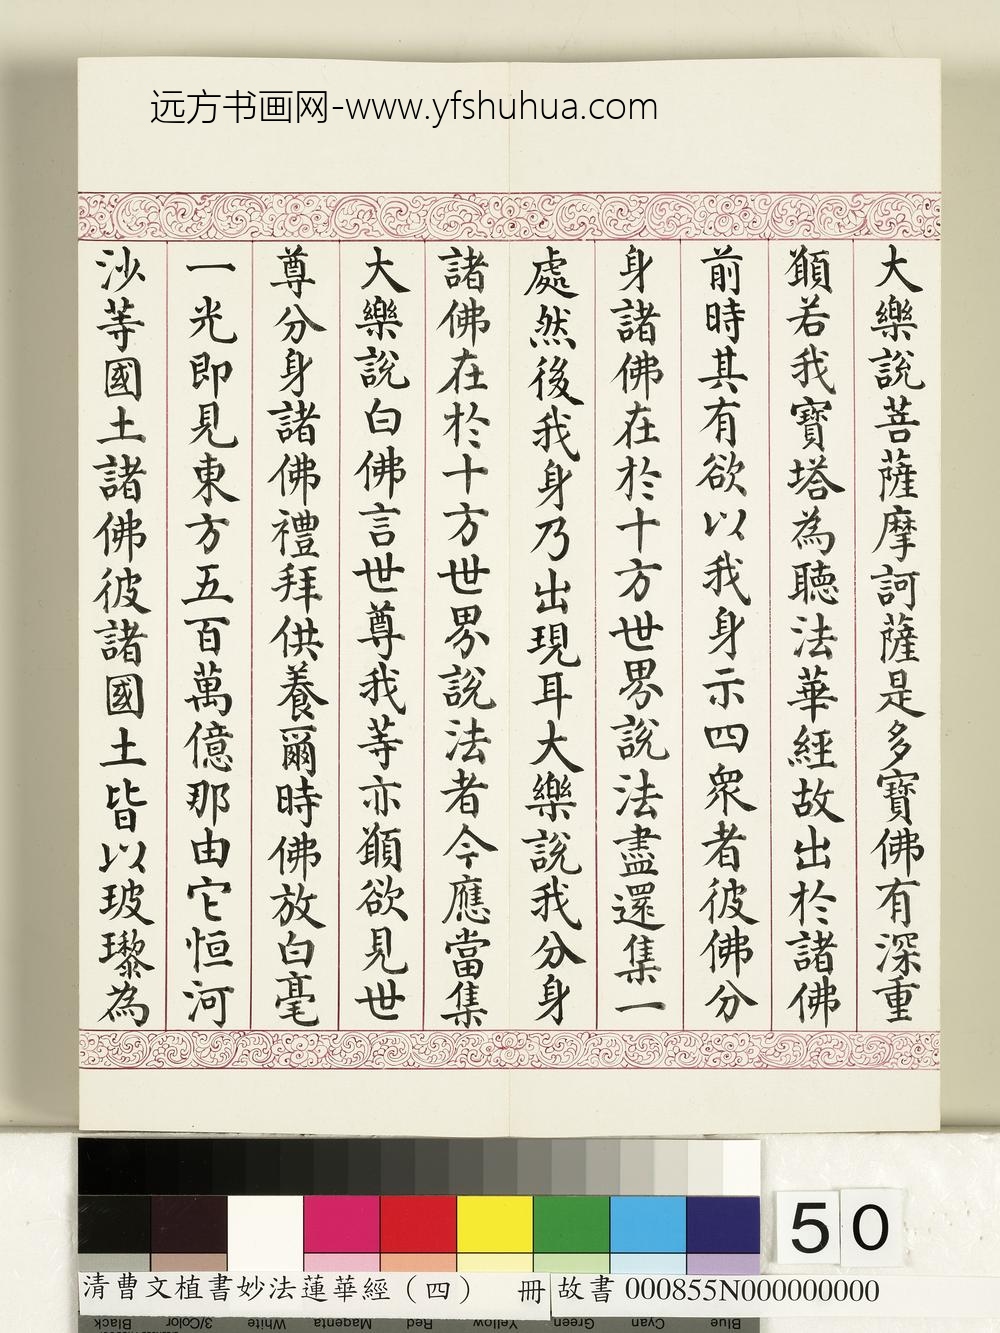 远方书画网-www.yfshuhua.com
大樂說菩薩摩訶薩是多寶佛有深重
願若我寶塔為聽法華經故出於諸佛
前時其有欲以我身示四眾者彼佛分
身諸佛在於十方世界說法盡還集一
處然後我身乃出現耳大樂說我分身
諸佛在於十方世界說法者今應當集
大樂說白佛言世尊我等亦願欲見世
尊分身諸佛禮拜供養爾時佛放白毫
一光即見東方五百萬億那由它恒河
沙等國土諸佛彼諸國土皆以玻瓈為
50
清曹文植書妙法蓮華經（四） 冊
故書 000855N000000000
Black 3/Color White Magenta Red Yellow Green Cyan Blue